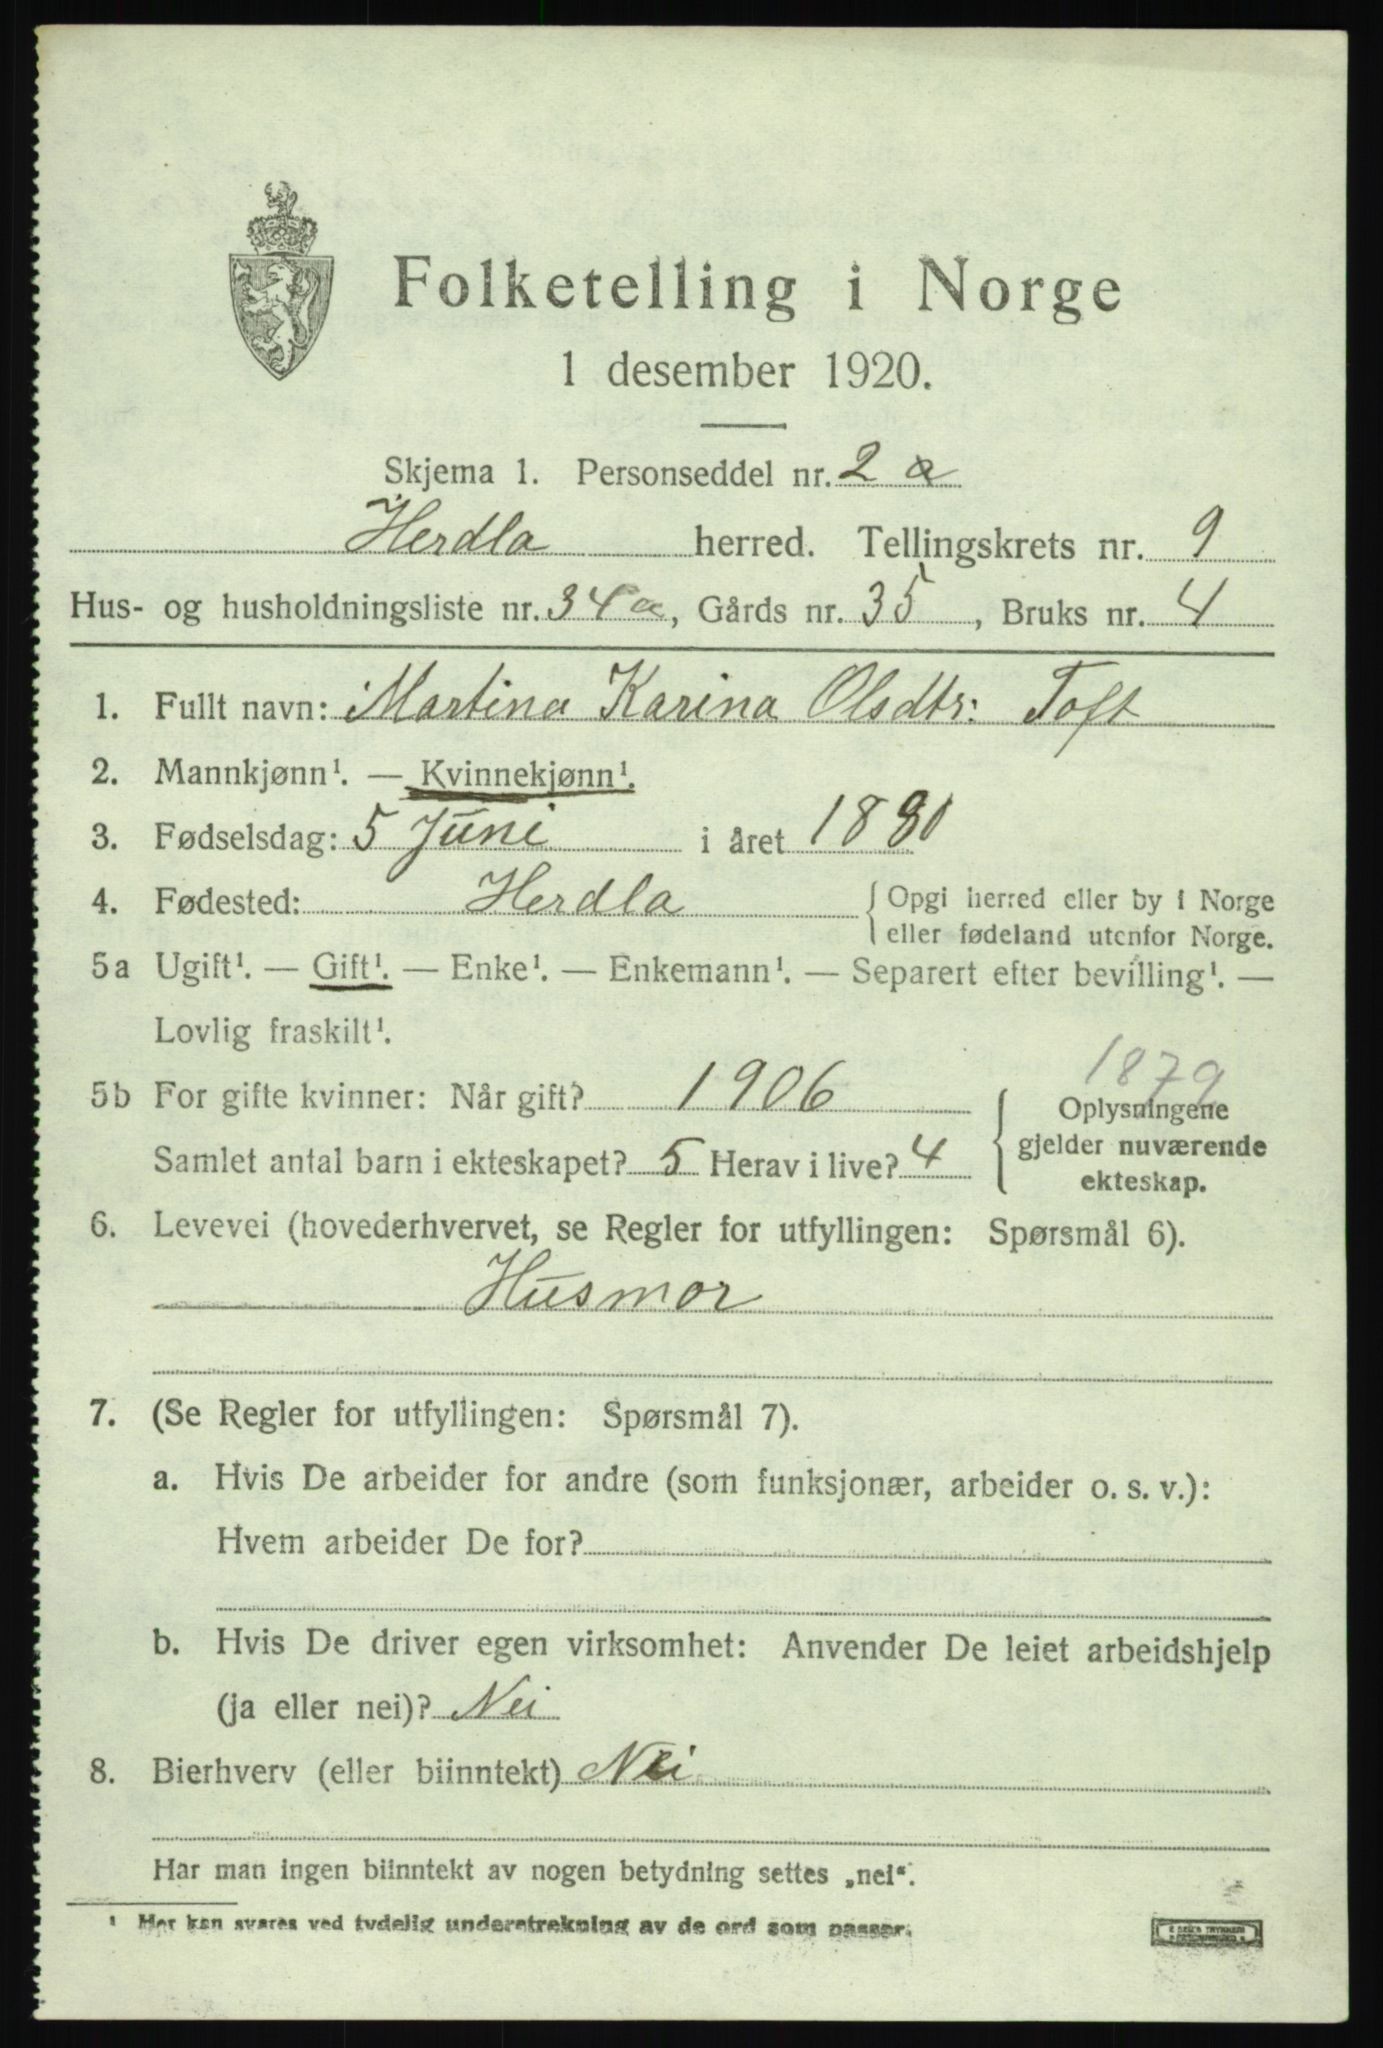 Folketelling i Norge
1 desember 1920.
Skjema 1. Personseddel nr. 2 a
Herdla herred. Tellingskrets nr. 9
Hus- og husholdningsliste nr. 34 a, Gårds nr. 35, Bruks nr. 4
1. Fullt navn: Martina Karina Olsdtr: Toft
2. Mannkjønn¹. — Kvinnekjønn¹.
3. Fødselsdag: 5 Juni i året 1880
4. Fødested: Herdla { Opgi herred eller by i Norge
eller fødeland utenfor Norge.
5a Ugift¹. — Gift¹. — Enke¹. — Enkemann¹. — Separert efter bevilling¹. —
Lovlig fraskilt¹.
1879
5b For gifte kvinner: Når gift? 1906 Oplysningene
Samlet antal barn i ekteskapet? 5 Herav i live? 4 gjelder nuværende
ekteskap.
6. Levevei (hovederhvervet, se Regler for utfyllingen: Spørsmål 6).
Husmor
7. (Se Regler for utfyllingen: Spørsmål 7).
a. Hvis De arbeider for andre (som funksjonær, arbeider o. s. v.):
Hvem arbeider De for?
b. Hvis De driver egen virksomhet: Anvender De leiet arbeidshjelp
(ja eller nei)? Nei
8. Bierhverv (eller biinntekt) Nei
Har man ingen biinntekt av nogen betydning settes „nei“.
¹ Her kan svares ved tydelig understrekning av de ord som passer.